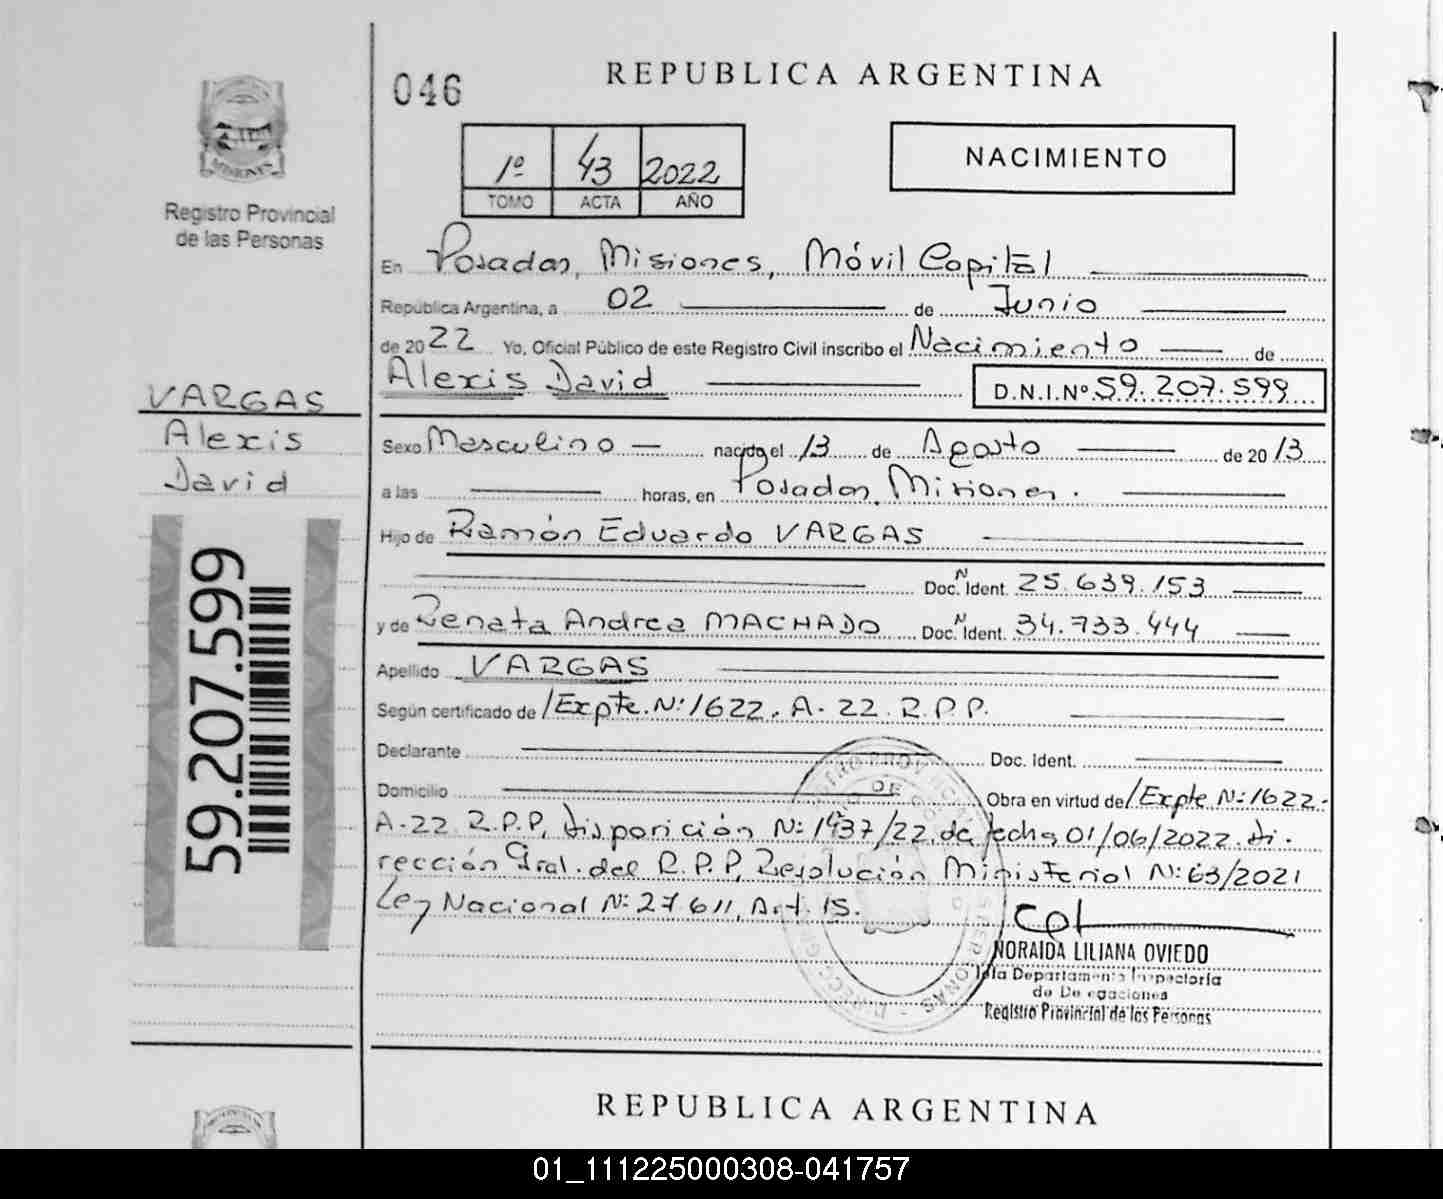 046
REPUBLICA ARGENTINA
1º 43 2022
TOMO ACTA AÑO
NACIMIENTO
MISIONES
Registro Provincial
de las Personas
VARGAS
Alexis
David
59.207.599
En Posadas, Misiones, Móvil Capital
República Argentina, a 02 de Junio
de 2022 Yo, Oficial Público de este Registro Civil inscribo el Nacimiento de
Alexis David D.N.I.Nº 59.207.599
Sexo Masculino nacido el 13 de Agosto de 2013
a las horas, en Posadas, Misiones.
Hijo de Ramón Eduardo VARGAS
Doc. N Ident. 25.639.153
y de Renata Andrea MACHADO Doc. N Ident. 34.733.444
Apellido VARGAS
Según certificado de /Expte. Nº 1622. A-22. R.P.P.
Declarante Doc. Ident.
Domicilio Obra en virtud de /Expte Nº 1622-
A-22 R.P.P, Disposición Nº 1437/22, de fecha 01/06/2022. Di-
rección Gral. del R.P.P, Resolución Ministerial Nº 63/2021
Ley Nacional Nº 27611, Art. 15.
NORAIDA LILIANA OVIEDO
Jefa Departamento Inspectoría
de Delegaciones
Registro Provincial de las Personas
REPUBLICA ARGENTINA
01_111225000308-041757